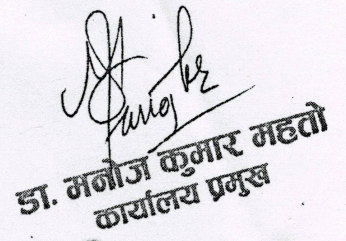 डा. मनोज कुमार महतो
कार्यालय प्रमुख